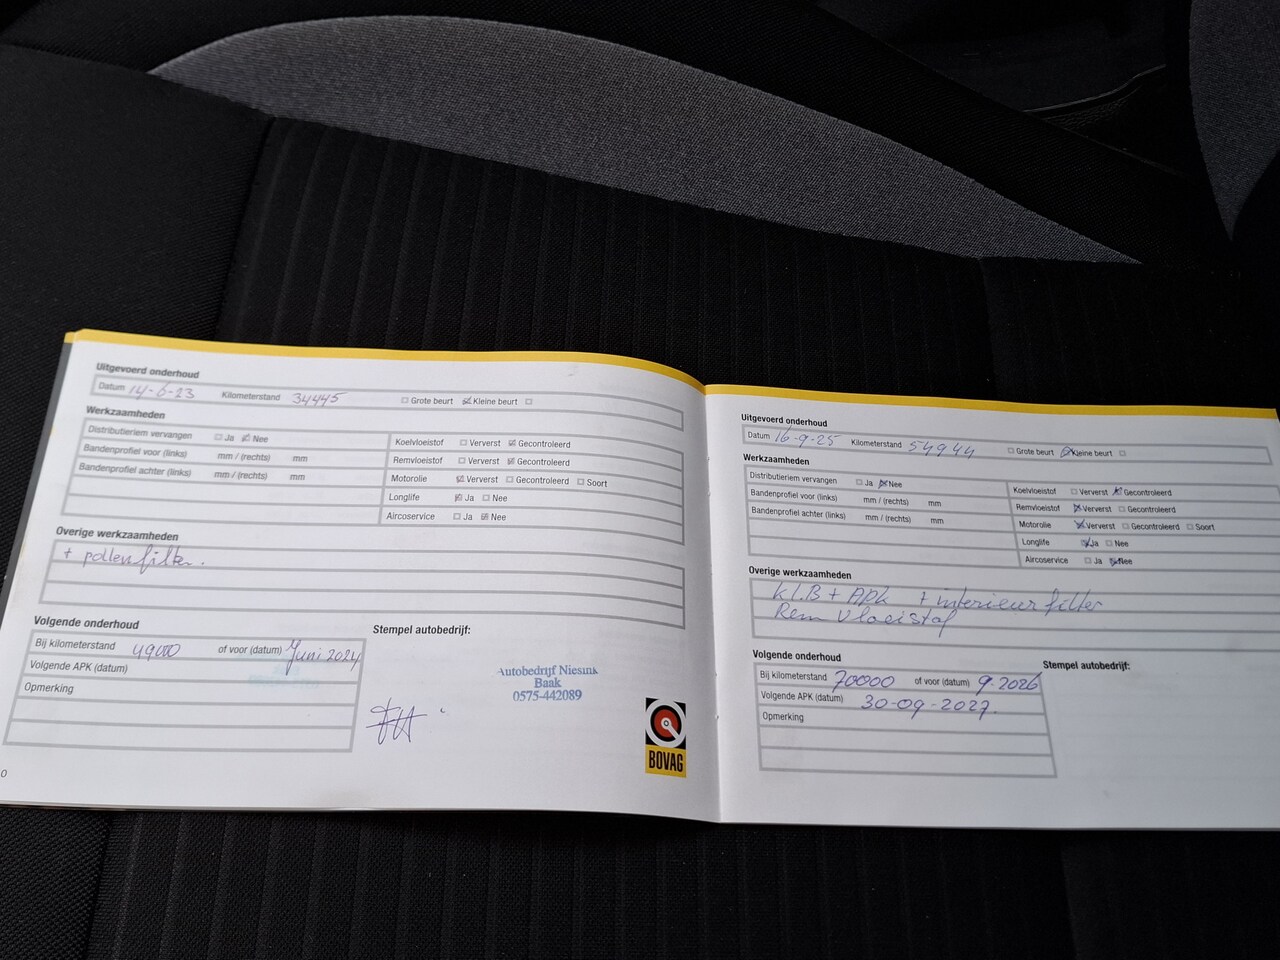 Uitgevoerd onderhoud
Datum 14-6-23 Kilometerstand 34445 Grote beurt Kleine beurt
Werkzaamheden
Distributieriem vervangen Ja Nee
Bandenprofiel voor (links) mm / (rechts) mm
Bandenprofiel achter (links) mm / (rechts) mm
Koelvloeistof Ververst Gecontroleerd
Remvloeistof Ververst Gecontroleerd
Motorolie Ververst Gecontroleerd Soort
Longlife Ja Nee
Aircoservice Ja Nee
Overige werkzaamheden
+ pollenfilter.
Volgende onderhoud
Bij kilometerstand 49000 of voor (datum) Juni 2024
Volgende APK (datum)
Opmerking
Stempel autobedrijf:
Autobedrijf Niesink
Baak
0575-442089
BOVAG
0
Uitgevoerd onderhoud
Datum 16-9-25 Kilometerstand 54944 Grote beurt Kleine beurt
Werkzaamheden
Distributieriem vervangen Ja Nee
Bandenprofiel voor (links) mm / (rechts) mm
Bandenprofiel achter (links) mm / (rechts) mm
Koelvloeistof Ververst Gecontroleerd
Remvloeistof Ververst Gecontroleerd
Motorolie Ververst Gecontroleerd Soort
Longlife Ja Nee
Aircoservice Ja Nee
Overige werkzaamheden
kl.B + APK + interieurfilter
Rem vloeistof
Volgende onderhoud
Bij kilometerstand 70000 of voor (datum) 9-2026
Volgende APK (datum) 30-09-2027.
Opmerking
Stempel autobedrijf: